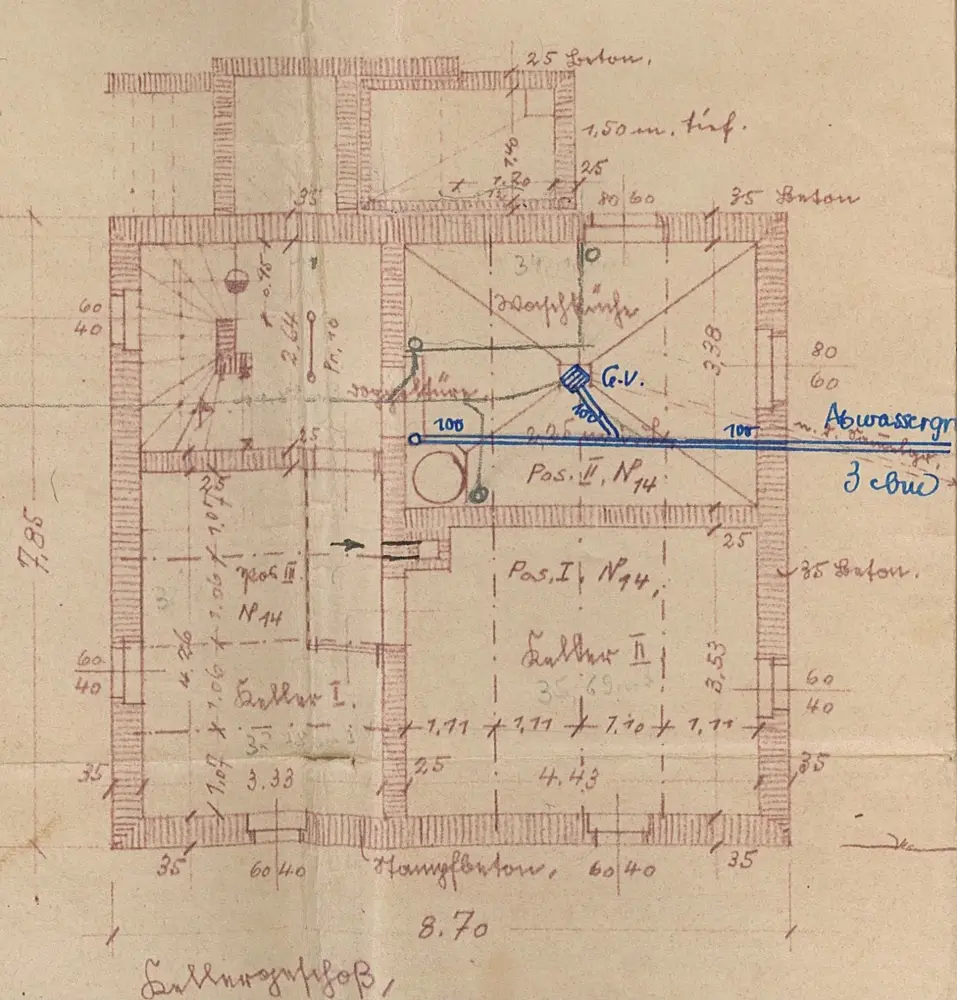 25 Beton.
1,50 m. tief.
2,40
1.20
25
35
80 60
35 Beton
60
40
0.95
2,64
Pr, 10
Waschküche
3,38
80
60
G.V.
Doppeltüre
100
100
100
Abwassergr
3 cbm
25
25
Pos. II, N 14
25
7,85
1,07
1.06
Pos III.
N 14
Pos. I, N 14,
35 Beton.
4.26
1.06
Keller II
3,53
60
40
60
40
Keller I.
1,11 1,11 1,10 1,11
1,07
35
3.33
25
4.43
35
35
60 40
Stampfbeton,
60 40
35
8.70
Kellergeschoß,